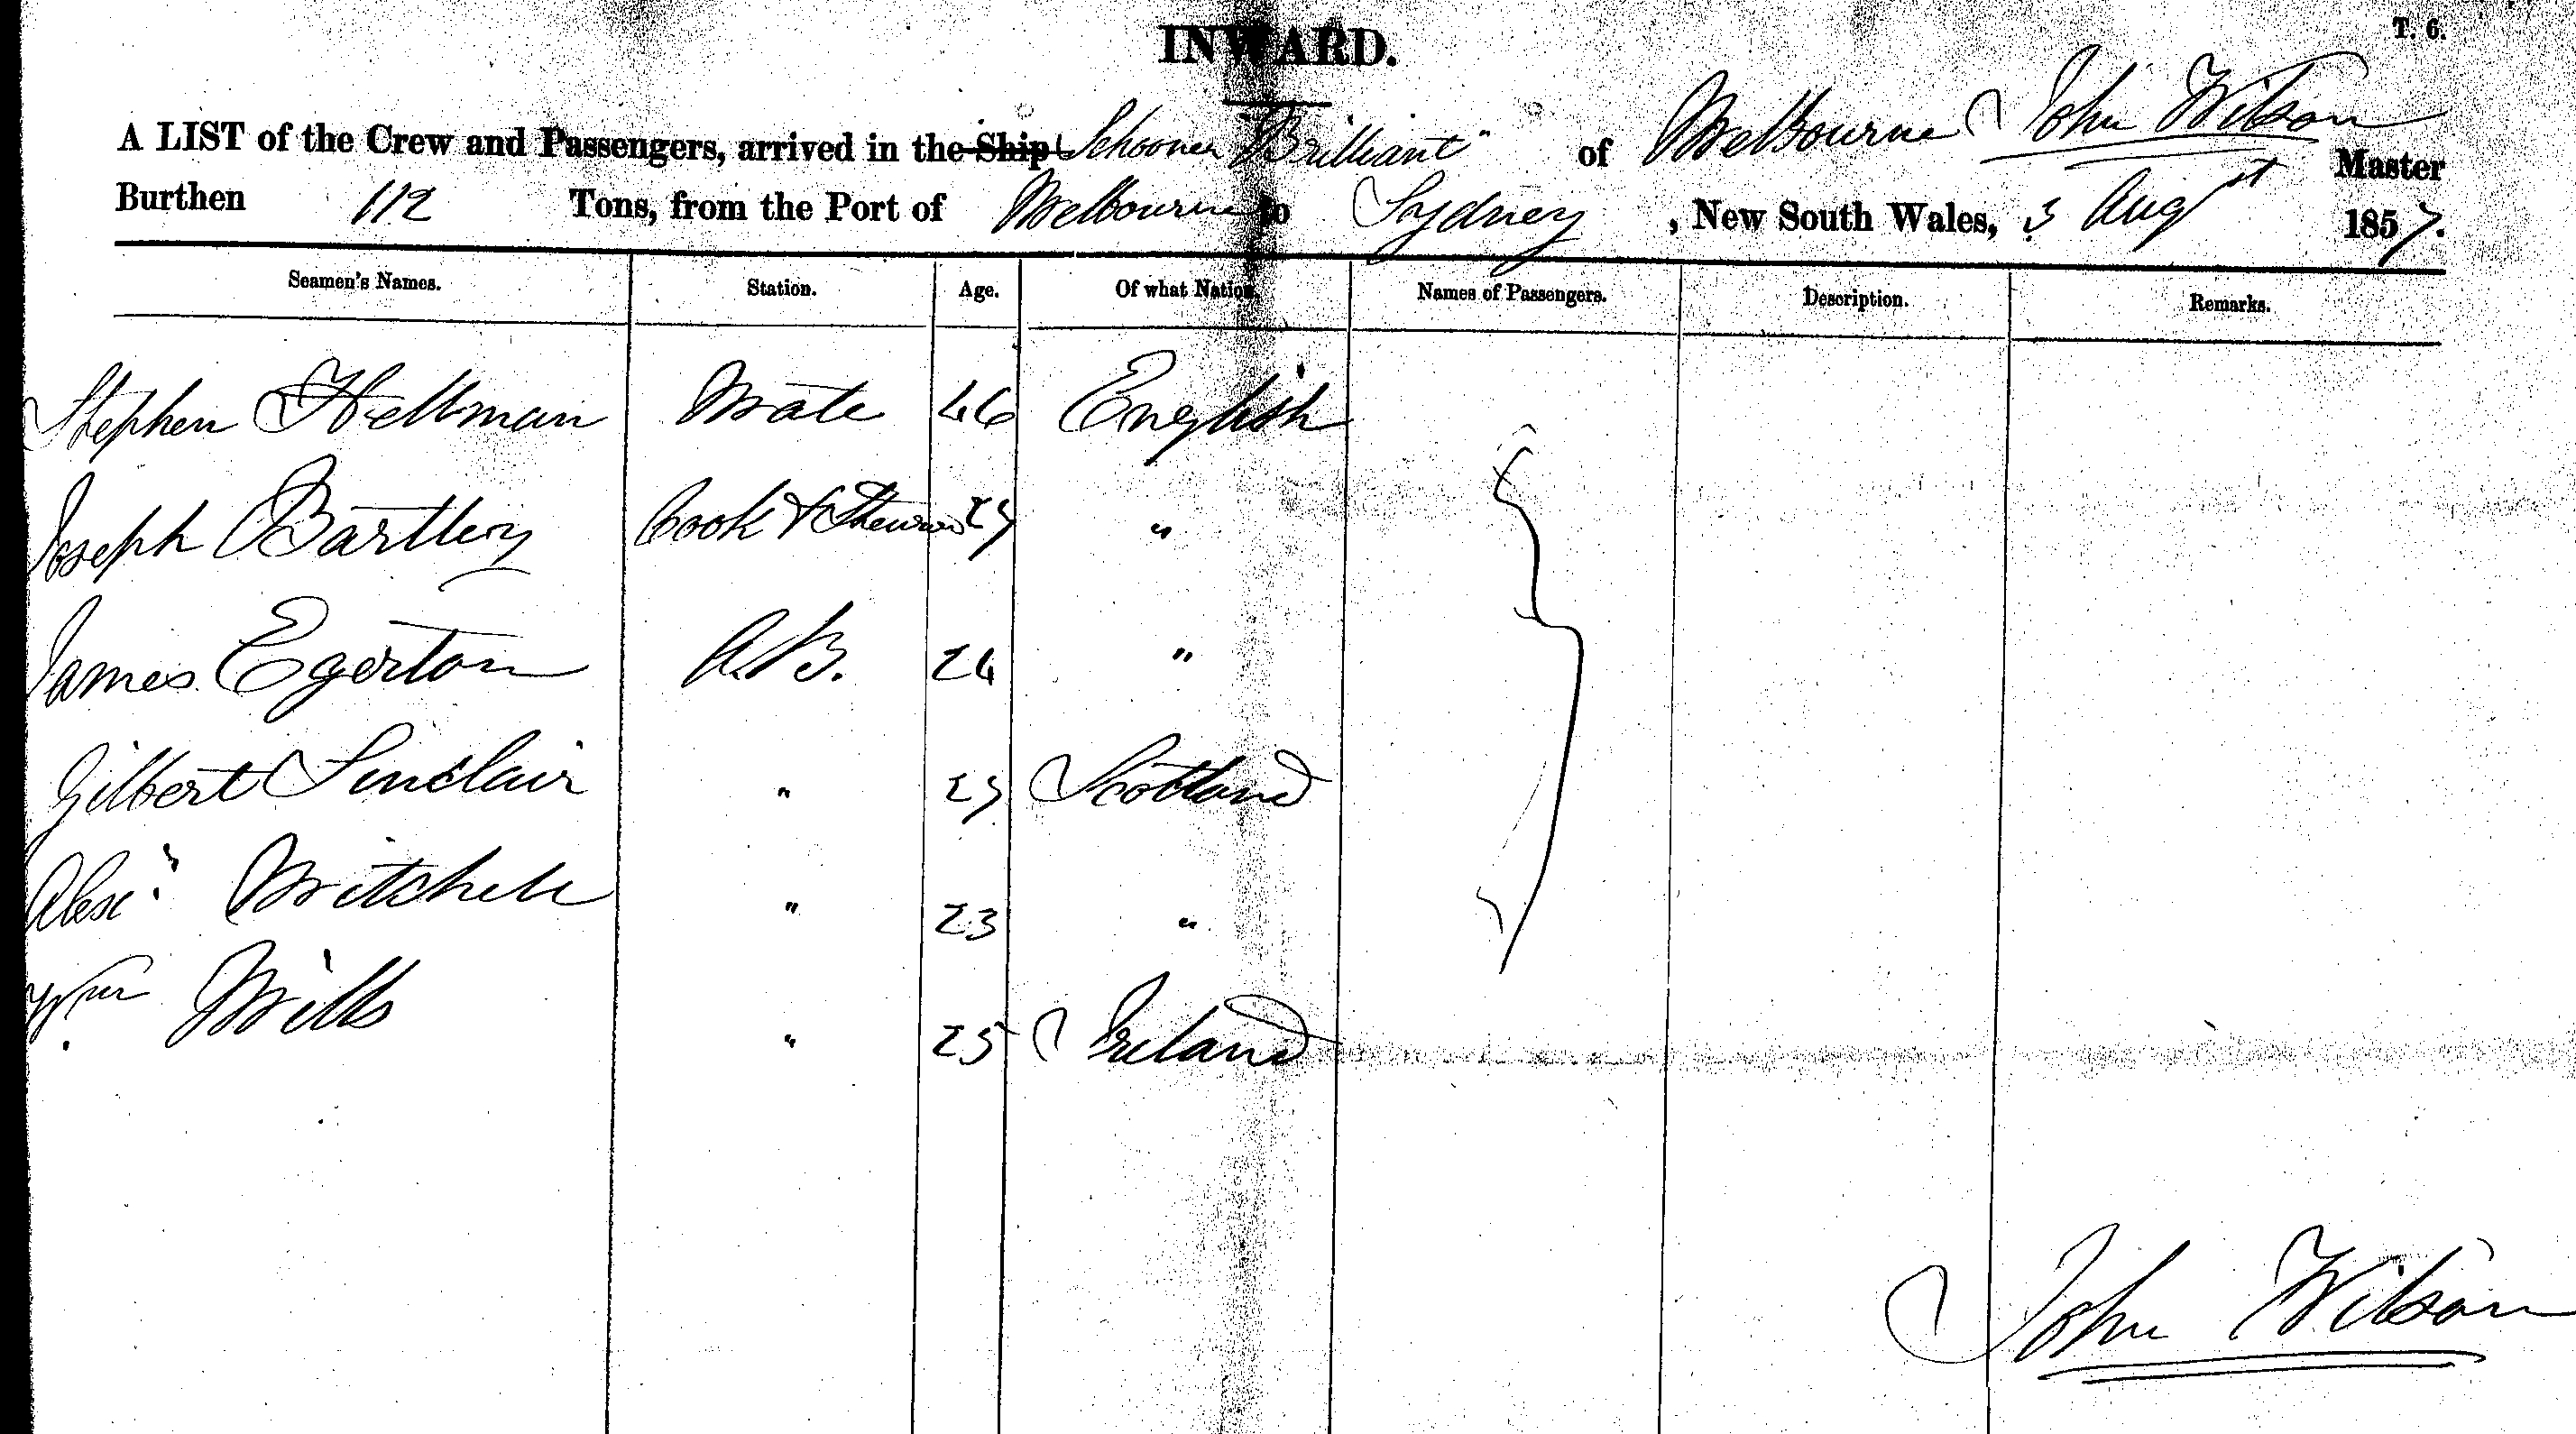 T. 6.
INWARD.
A LIST of the Crew and Passengers, arrived in the Ship Schooner "Brilliant" of Melbourne John Wilson Master
Burthen 112 Tons, from the Port of Melbourne to Sydney, New South Wales, 3 Augst 1857.
Seamen's Names. Station. Age. Of what Nation. Names of Passengers. Description. Remarks.
Stephen Hellman Mate 46 English
Joseph Bartley Cook & Steward "
James Egerton A.B. 24 "
Gilbert Sinclair " Scotland
Alexr Mitchell " 23 "
Wm Mills " 25 Ireland
John Wilson